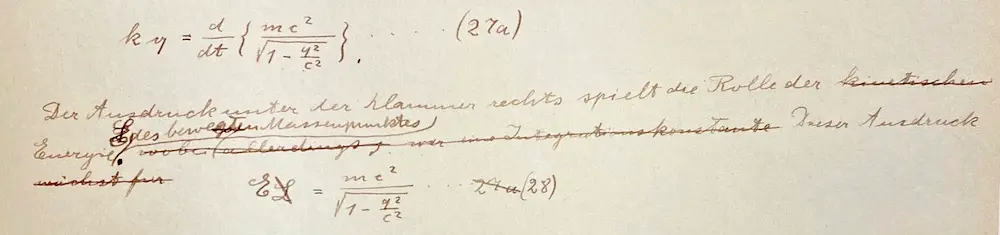 k q = d/dt { mc² / √(1 − q²/c²) } . . . . . (27a)
Der Ausdruck unter der Klammer rechts spielt die Rolle der kinetischen
E des bewegten Massenpunktes
Energie, wobei (allerdings) wir eine Integrationskonstante Dieser Ausdruck
wächst für
E L = mc² / √(1 − q²/c²) . . . 27a (28)